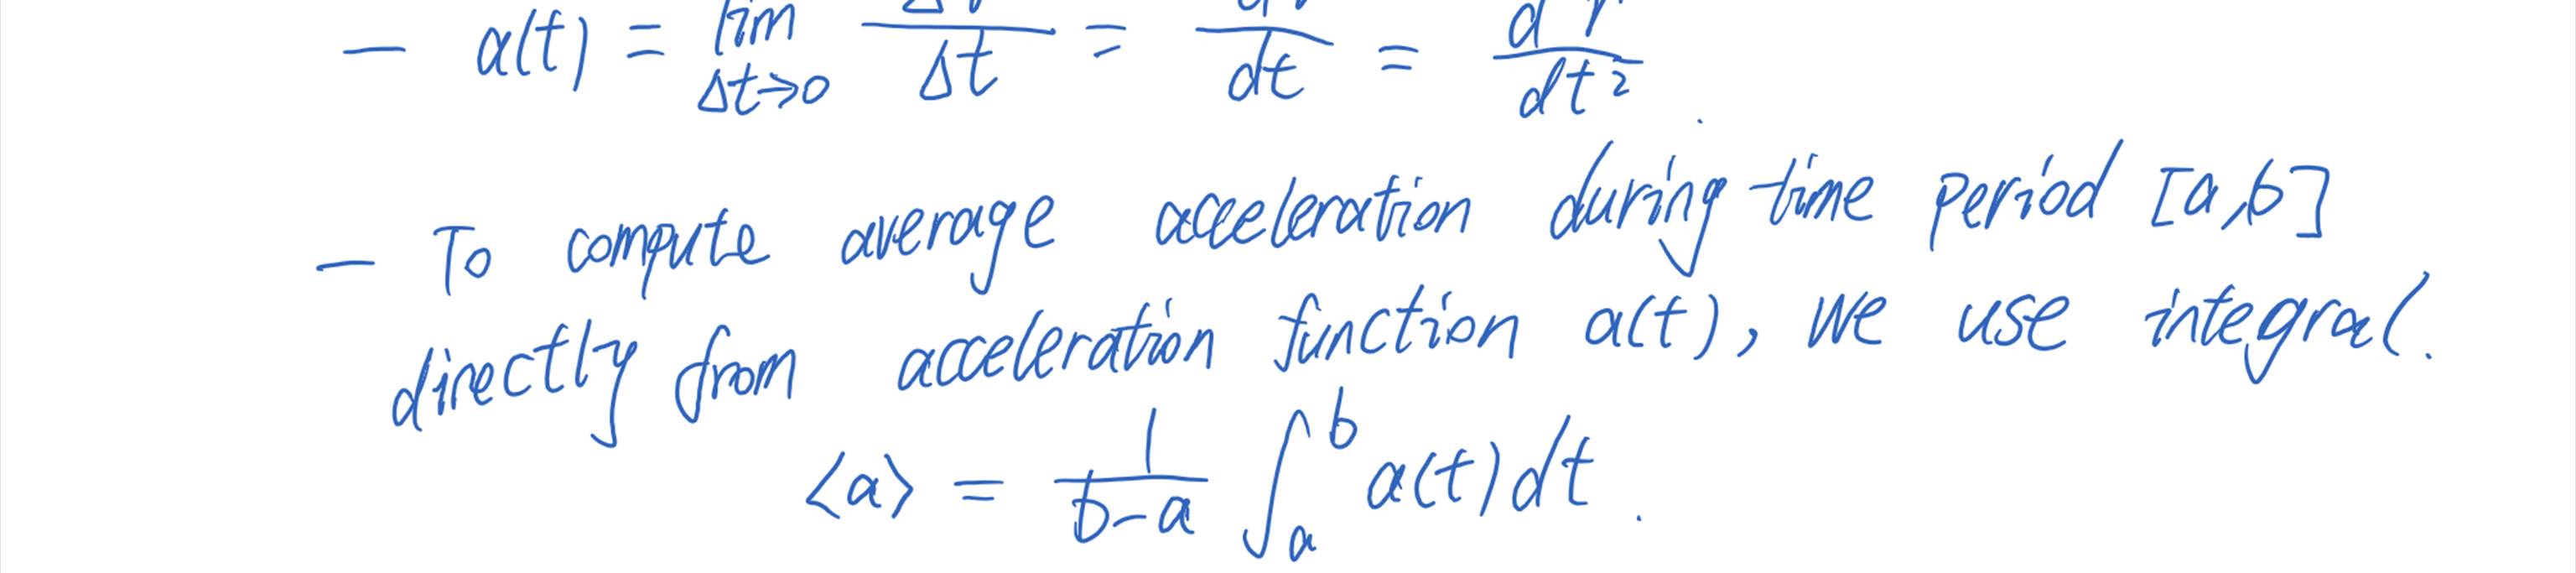 — a(t) = lim Δt→0 / Δt = / dt = / dt²
— To compute average acceleration during time period [a,b]
directly from acceleration function a(t), we use integral.
⟨a⟩ = 1/(b-a) ∫_a^b a(t)dt.